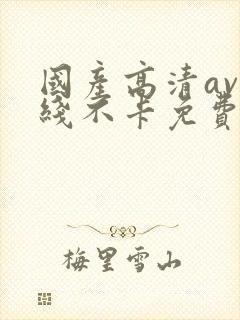 國產高清av
綫不卡免費
梅里雪山